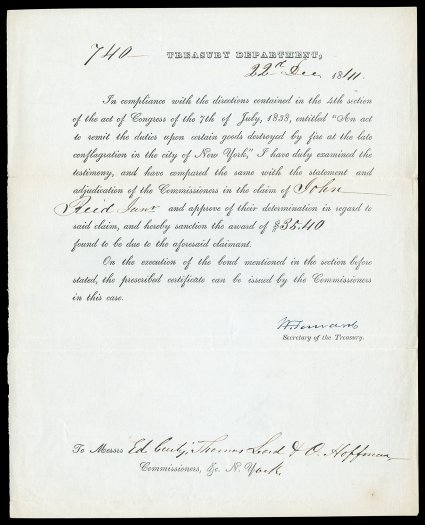 740 TREASURY DEPARTMENT,
22d Dec 1841
In compliance with the directions contained in the 4th section
of the act of Congress of the 7th of July, 1838, entitled "An act
to remit the duties upon certain goods destroyed by fire at the late
conflagration in the city of New York," I have duly examined the
testimony, and have compared the same with the statement and
adjudication of the Commissioners in the claim of John
Reid Junr and approve of their determination in regard to
said claim, and hereby sanction the award of $35.40
found to be due to the aforesaid claimant.
On the execution of the bond mentioned in the section before
stated, the prescribed certificate can be issued by the Commissioners
in this case.
W. Forward
Secretary of the Treasury.
To Messrs Ed Curtis, Thomas Lord & O. Hoffman
Commissioners, &c. N. York.